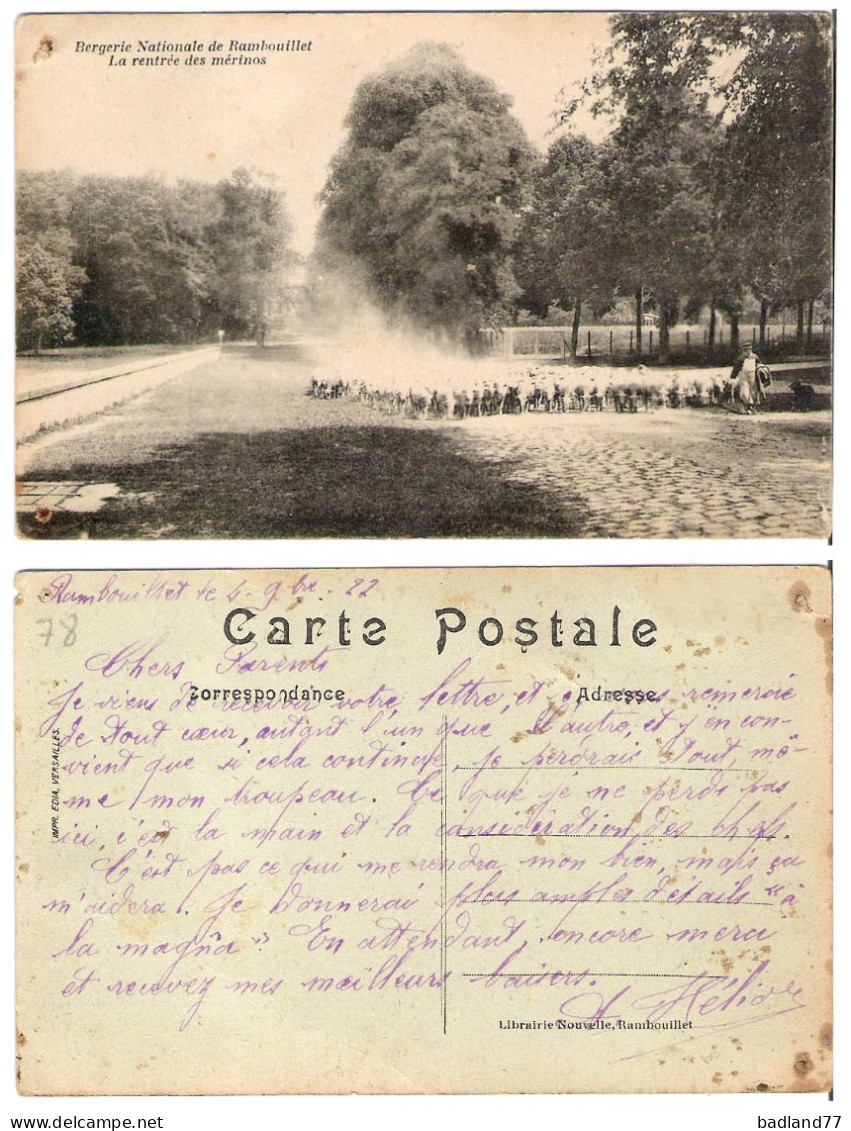 Bergerie Nationale de Rambouillet
La rentrée des mérinos
Rambouillet le 4-9bre-22
78
Carte Postale
Chers Parents
Correspondance
Adresse
Je viens de recevoir votre lettre, et vous remercie
de tout cœur, autant l'un que l'autre, et j'en con-
vient que si cela continue, je perdrais tout, mê-
me mon troupeau. Ce que je ne perds pas
ici, c'est la main et la considération des chefs.
C'est pas ce qui me rendra mon bien, mais ça
m'aidera. Je donnerai plus amples détails "à
la magña". En attendant, encore merci
et recevez mes meilleurs baisers.
IMPR. EDIA, VERSAILLES.
Librairie Nouvelle, Rambouillet
badland77